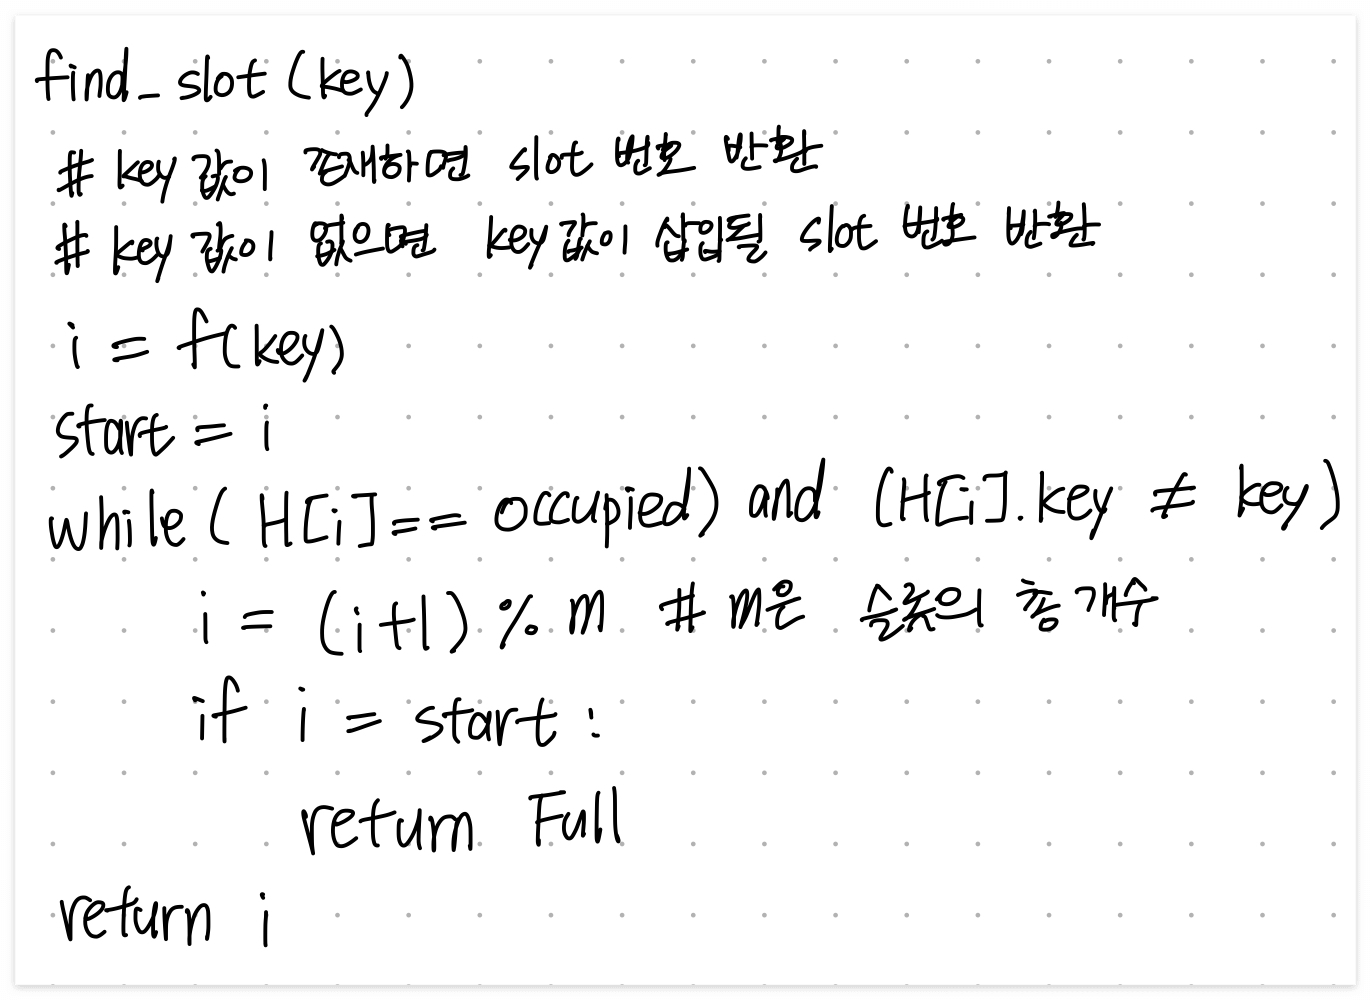 find_slot (key)
# key 값이 존재하면 slot 번호 반환
# key 값이 없으면 key 값이 삽입될 slot 번호 반환
i = f(key)
start = i
while ( H[i] == occupied) and (H[i].key ≠ key)
i = (i+1) % m # m은 슬롯의 총 개수
if i = start :
return Full
return i